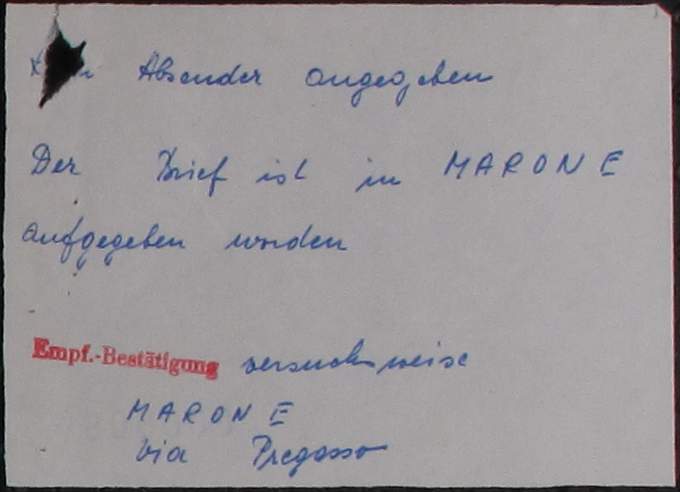 Absender angegeben
Der Brief ist in MARONE
aufgegeben worden
Empf.-Bestätigung versuchsweise
MARONE
Via Pregasso